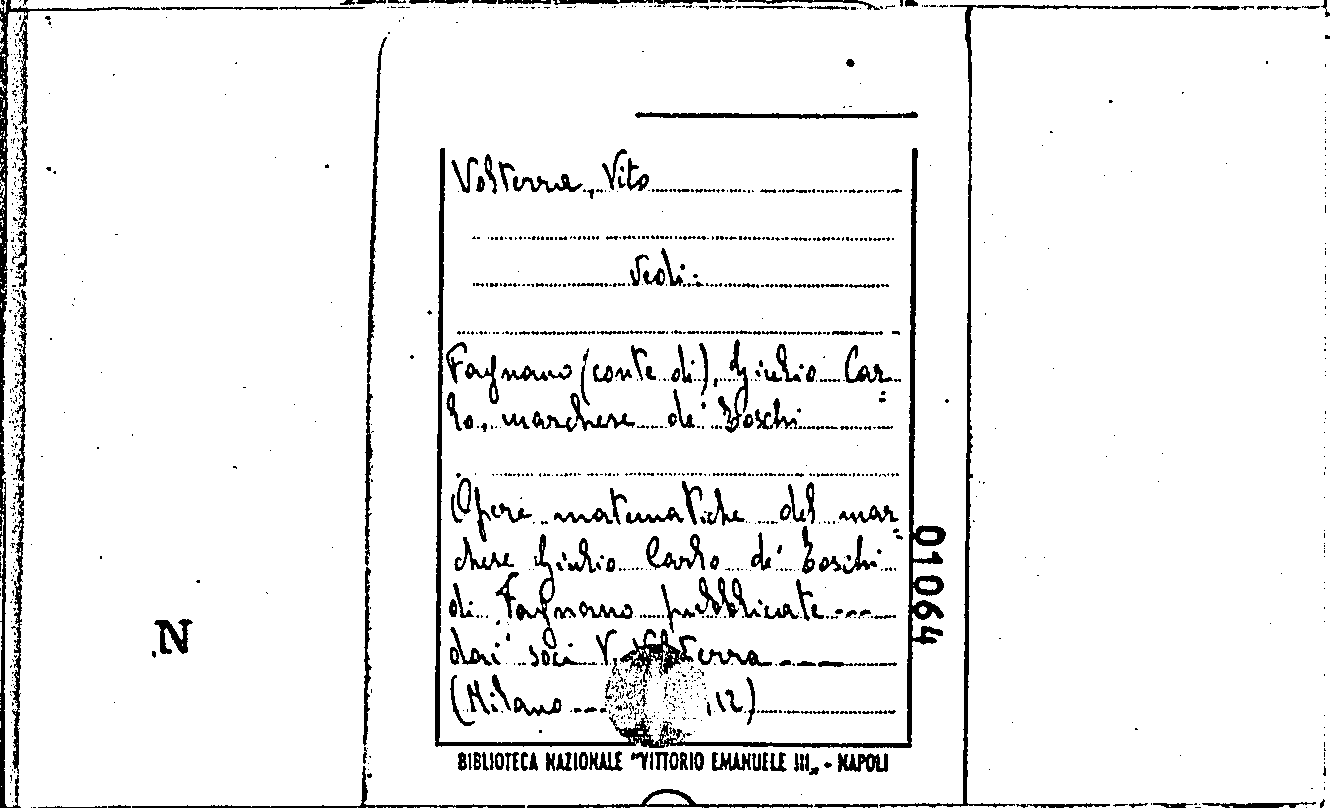 Volterra, Vito
Vedi:
Fagnano (conte di), Giulio Car=
lo, marchese de' Toschi
Opere matematiche del mar=
chese Giulio Carlo de' Toschi
di Fagnano pubblicate ---
dai soci V. Volterra ----
(Milano --- ,12)
01064
N
BIBLIOTECA NAZIONALE "VITTORIO EMANUELE III„ - NAPOLI